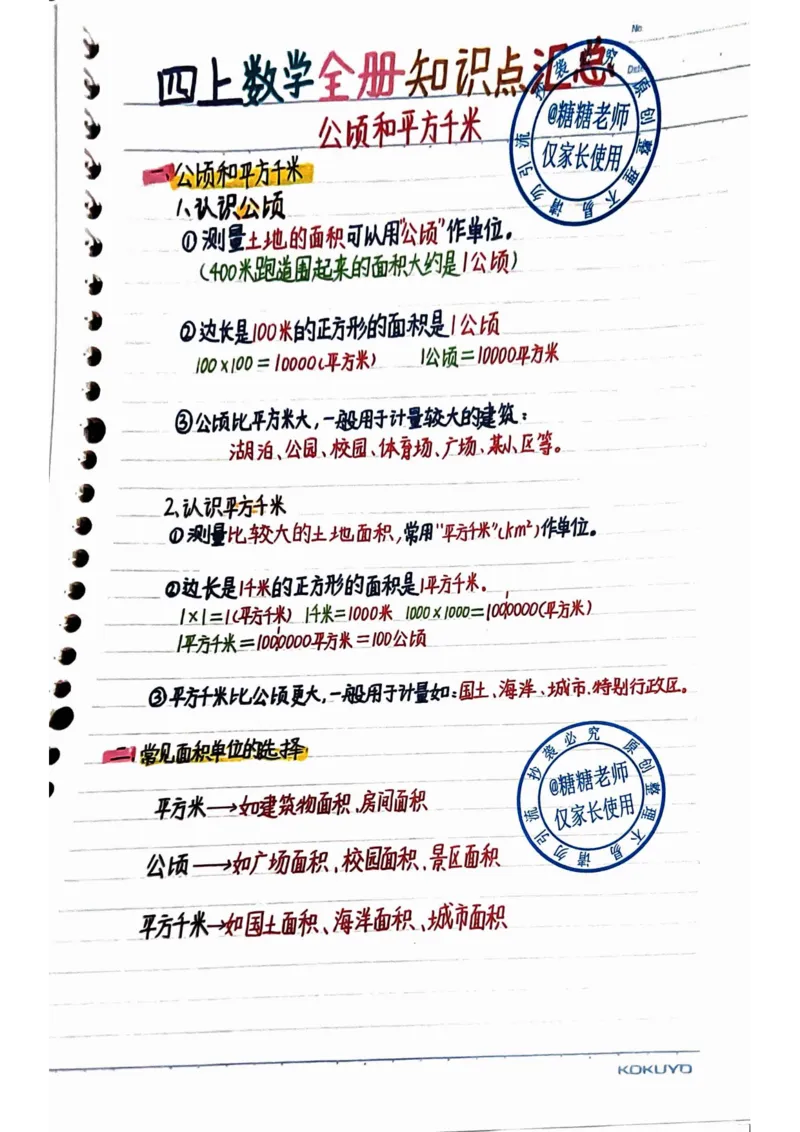 No
Date
四上数学全册知识点汇总
公顷和平方千米
一、公顷和平方千米
1、认识公顷
①测量土地的面积可以用"公顷"作单位。
(400米跑道围起来的面积大约是1公顷)
②边长是100米的正方形的面积是1公顷
100×100=10000(平方米) 1公顷=10000平方米
③公顷比平方米大,一般用于计量较大的建筑:
湖泊、公园、校园、体育场、广场、某小区等。
2、认识平方千米
①测量比较大的土地面积,常用"平方千米"(km²)作单位。
②边长是1千米的正方形的面积是1平方千米。
1×1=1(平方千米) 1千米=1000米 1000×1000=1000000(平方米)
1平方千米=1000000平方米=100公顷
③平方千米比公顷更大,一般用于计量如:国土、海洋、城市、特别行政区。
二、常见面积单位的选择
平方米→如建筑物面积、房间面积
公顷→如广场面积、校园面积、景区面积
平方千米→如国土面积、海洋面积、城市面积
@糖糖老师
仅家长使用
原创整理不易请勿引流抄袭必究
@糖糖老师
仅家长使用
原创整理不易请勿引流抄袭必究
KOKUYO